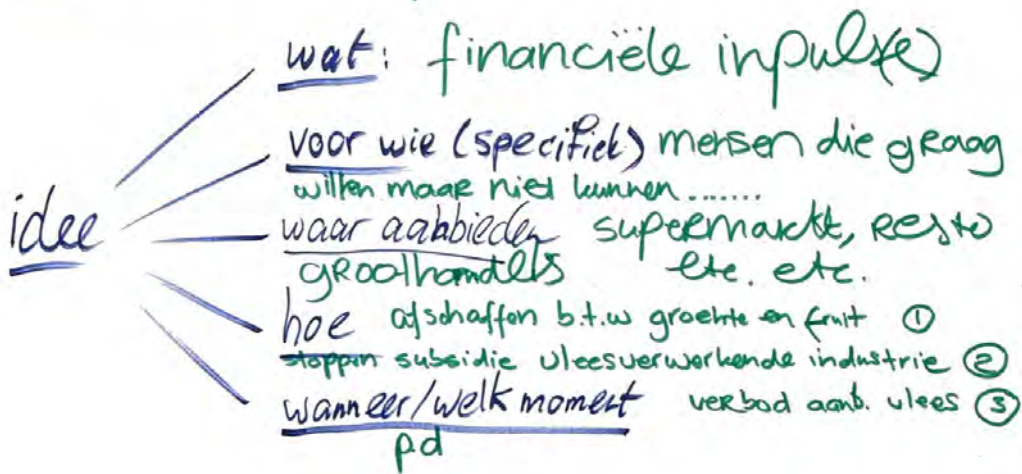 wat: financiële inpuls(e)
voor wie (specifiek) mensen die graag
willen maar niet kunnen.......
idee
waar aabbieden supermarkt, Resto
groothandels etc. etc.
hoe afschaffen b.t.w groente en fruit ①
stoppen subsidie vleesverwerkende industrie ②
wanneer/welk moment verbod aanb. vlees ③
p.d